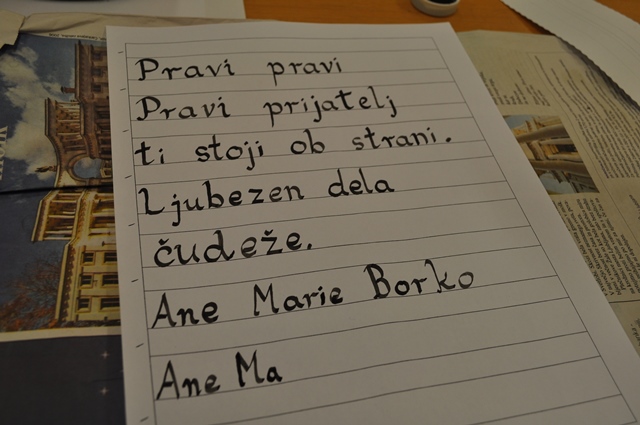 Pravi pravi
Pravi prijatelj
ti stoji ob strani.
Ljubezen dela
čudeže.
Ane Marie Borko
Ane Ma